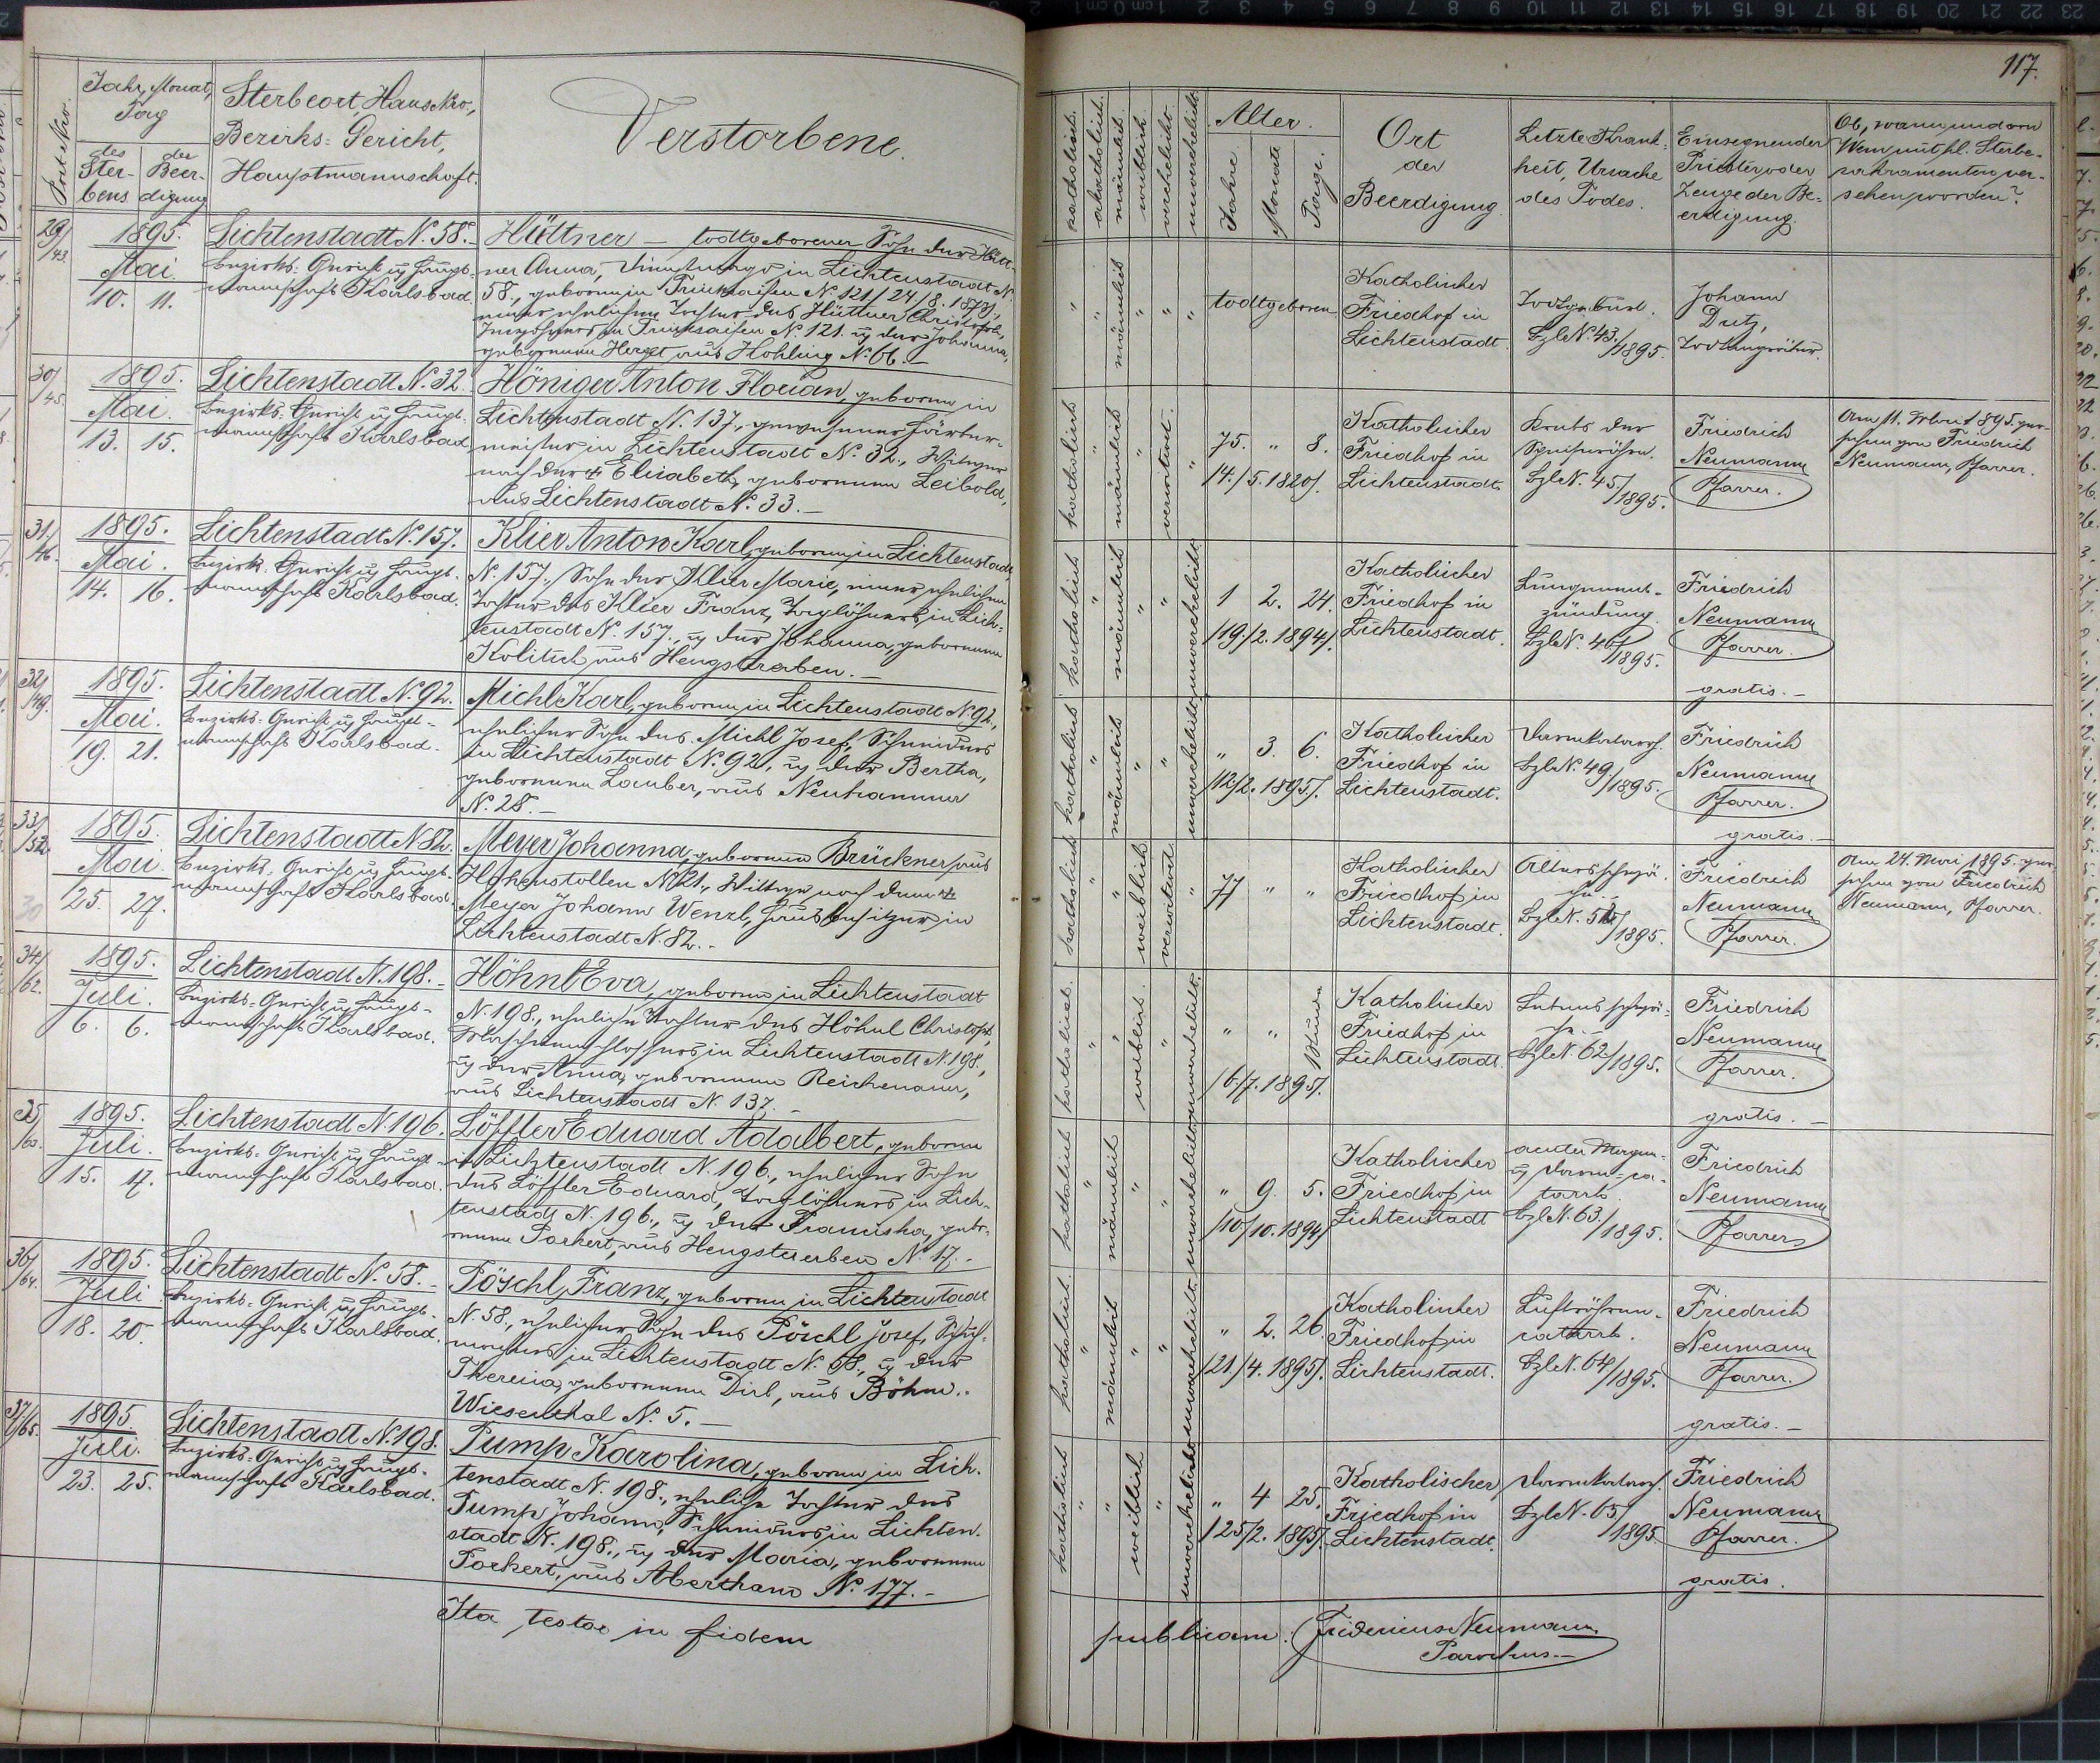 117.
Post-Nro.
Jahr, Monat,
Tag
des
Ster-
bens
der
Beer-
digung
Sterbeort, Haus-Nro.,
Bezirks-Gericht,
Hauptmannschaft.
Verstorbene.
katholisch.
akatholisch.
männlich.
weiblich.
verehelicht.
unverehelicht.
Alter.
Jahre.
Monate
Tage.
Ort
der
Beerdigung.
Letzte Krank-
heit, Ursache
des Todes.
Einsegnender
Priester oder
Zeuge der Be-
erdigung.
Ob, wann und von
Wem mit hl. Sterbe-
sakramenten ver-
sehen worden?
29/43.
1895.
Mai.
10. 11.
Lichtenstadt N. 58.
Bezirks-Gericht u Haupt-
mannschaft Karlsbad.
Hüttner – todtgeborener Sohn der Hütt-
ner Anna, Dienstmagd in Lichtenstadt N.
58., geboren in Trinksaifen N. 121 /24/8. 1873/,
einer ehelichen Tochter des Hüttner Christoph,
in Trinksaifen N. 121. u der Johanna,
geborenen Herget aus Hohling N. 66. –
" " männlich " " "
todtgeboren
Katholischer
Friedhof in
Lichtenstadt.
Todtgeburt.
BzlN. 43./1895.
Johann
Dutz,
Todtengräber.
30/45.
1895.
Mai.
13. 15.
Lichtenstadt N. 32.
Bezirks-Gericht u Haupt-
mannschaft Karlsbad
Höniger Anton Florian, geboren in
Lichtenstadt N. 137., gewesener Färber-
meister in Lichtenstadt N. 32., Witwer
nach der † Elisabeth, geborenen Leibold,
aus Lichtenstadt N. 33. –
katholisch " männlich " verwitwet. "
75. " 8.
14./5. 1820/.
Katholischer
Friedhof in
Lichtenstadt
Krebs der
Speiseröhre.
BzlN. 45./1895.
Friedrich
Neumann
Pfarrer.
Am 11. Mai 1895. ver-
sehen von Friedrich
Neumann, Pfarrer.
31./46.
1895.
Mai.
14. 16.
Lichtenstadt N. 157.
Bezirk. Gericht u Haupt-
mannschaft Karlsbad.
Klier Anton Karl, geboren in Lichtenstadt
N. 157., Sohn der Klier Marie, einer ehelichen
Tochter des Klier Franz, Taglöhners in Lich-
tenstadt N. 157., u der Johanna, geborenen
Kolitsch aus Hengstraben. –
katholisch " männlich " " unverehelicht.
1 2. 24.
/19./2. 1894/.
Katholischer
Friedhof in
Lichtenstadt.
Lungenent-
zündung.
BzlN. 46/1895.
Friedrich
Neumann
Pfarrer.
gratis. –
32/49.
1895.
Mai.
19. 21.
Lichtenstadt N. 92.
Bezirks-Gericht u Haupt-
mannschaft Karlsbad.
Michl Karl, geboren in Lichtenstadt N. 92.,
ehelicher Sohn des Michl Josef, Schneiders
in Lichtenstadt N. 92., u der Bertha,
geborenen Lauber, aus Neuhammer
N. 28. –
katholisch " männlich " " unverehelicht.
" 3. 6.
/12./2. 1895/.
Katholischer
Friedhof in
Lichtenstadt.
Darmkatarrh.
BzlN. 49./1895.
Friedrich
Neumann
Pfarrer.
gratis. –
33/52.
1895.
Mai
25. 27.
30
Lichtenstadt N. 82.
Bezirks-Gericht u Haupt-
mannschaft Karlsbad.
Meyer Johanna, geborene Brückner, aus
Hohenstollen N. 21., Witwe nach dem †
Meyer Johann Wenzl, Hausbesitzer in
Lichtenstadt N. 82. –
katholisch " " weiblich verwitwet "
77 " "
Katholischer
Friedhof in
Lichtenstadt.
Altersschwä-
che. –
BzlN. 52/1895.
Friedrich
Neumann
Pfarrer.
Am 24. Mai 1895. ver-
sehen von Friedrich
Neumann, Pfarrer.
34/62.
1895.
Juli.
6. 6.
Lichtenstadt N. 198. –
Bezirks-Gericht u Haupt-
mannschaft Karlsbad.
Höhnl Eva, geboren in Lichtenstadt
N. 198., eheliche Tochter des Höhnl Christoph,
Maschinenschlossers in Lichtenstadt N. 198.,
u der Anna, geborenen Reichenauer,
aus Lichtenstadt N. 137. –
katholisch. " " weiblich. " unverehelicht.
" " 1 Stunde
/6./7. 1895/.
Katholischer
Friedhof in
Lichtenstadt.
Lebensschwä-
che. –
BzlN. 62./1895.
Friedrich
Neumann
Pfarrer.
gratis. –
35/63.
1895.
Juli.
15. 17.
Lichtenstadt N. 196.
Bezirks-Gericht u Haupt-
mannschaft Karlsbad.
Löffler Eduard Adalbert, geboren
in Lichtenstadt N. 196., ehelicher Sohn
des Löffler Eduard, Taglöhners in Lich-
tenstadt N. 196., u der Franziska, gebo-
renen Porkert, aus Hengstererben N. 17. –
katholisch " männlich " " unverehelicht.
" 9. 5.
/10/10. 1894/
Katholischer
Friedhof in
Lichtenstadt
acuter Magen-
u Darm-ca-
tarrh.
BzlN. 63./1895.
Friedrich
Neumann
Pfarrer
36/64.
1895.
Juli
18. 20.
Lichtenstadt N. 58. –
Bezirks-Gericht u Haupt-
mannschaft Karlsbad.
Pöschl Franz, geboren in Lichtenstadt
N. 58., ehelicher Sohn des Pöschl Josef, Schuh-
machers in Lichtenstadt N. 58., u der
Theresia, geborenen Dirl, aus Böhm.-
Wiesenthal N. 5. –
katholisch. " männlich " " unverehelicht.
" 2. 26.
/21./4. 1895/.
Katholischer
Friedhof in
Lichtenstadt.
Luftröhren-
catarrh.
BzlN. 64/1895.
Friedrich
Neumann
Pfarrer.
gratis. –
37/65.
1895
Juli.
23. 25.
Lichtenstadt N. 198.
Bezirks-Gericht u Haupt-
mannschaft Karlsbad.
Pump Karolina, geboren in Lich-
tenstadt N. 198., eheliche Tochter des
Pump Johann, Schneiders in Lichten-
stadt N. 198., u der Maria, geborenen
Porkert, aus Abertham N. 177. –
katholisch " " weiblich " unverehelicht.
" 4 25.
/25/2. 1895/.
Katholischer
Friedhof in
Lichtenstadt.
Darmkatarrh.
BzlN. 65/1895.
Friedrich
Neumann
Pfarrer.
gratis.
Ita testor in fidem
publicam. Fridericus Neumann
Parochus. –